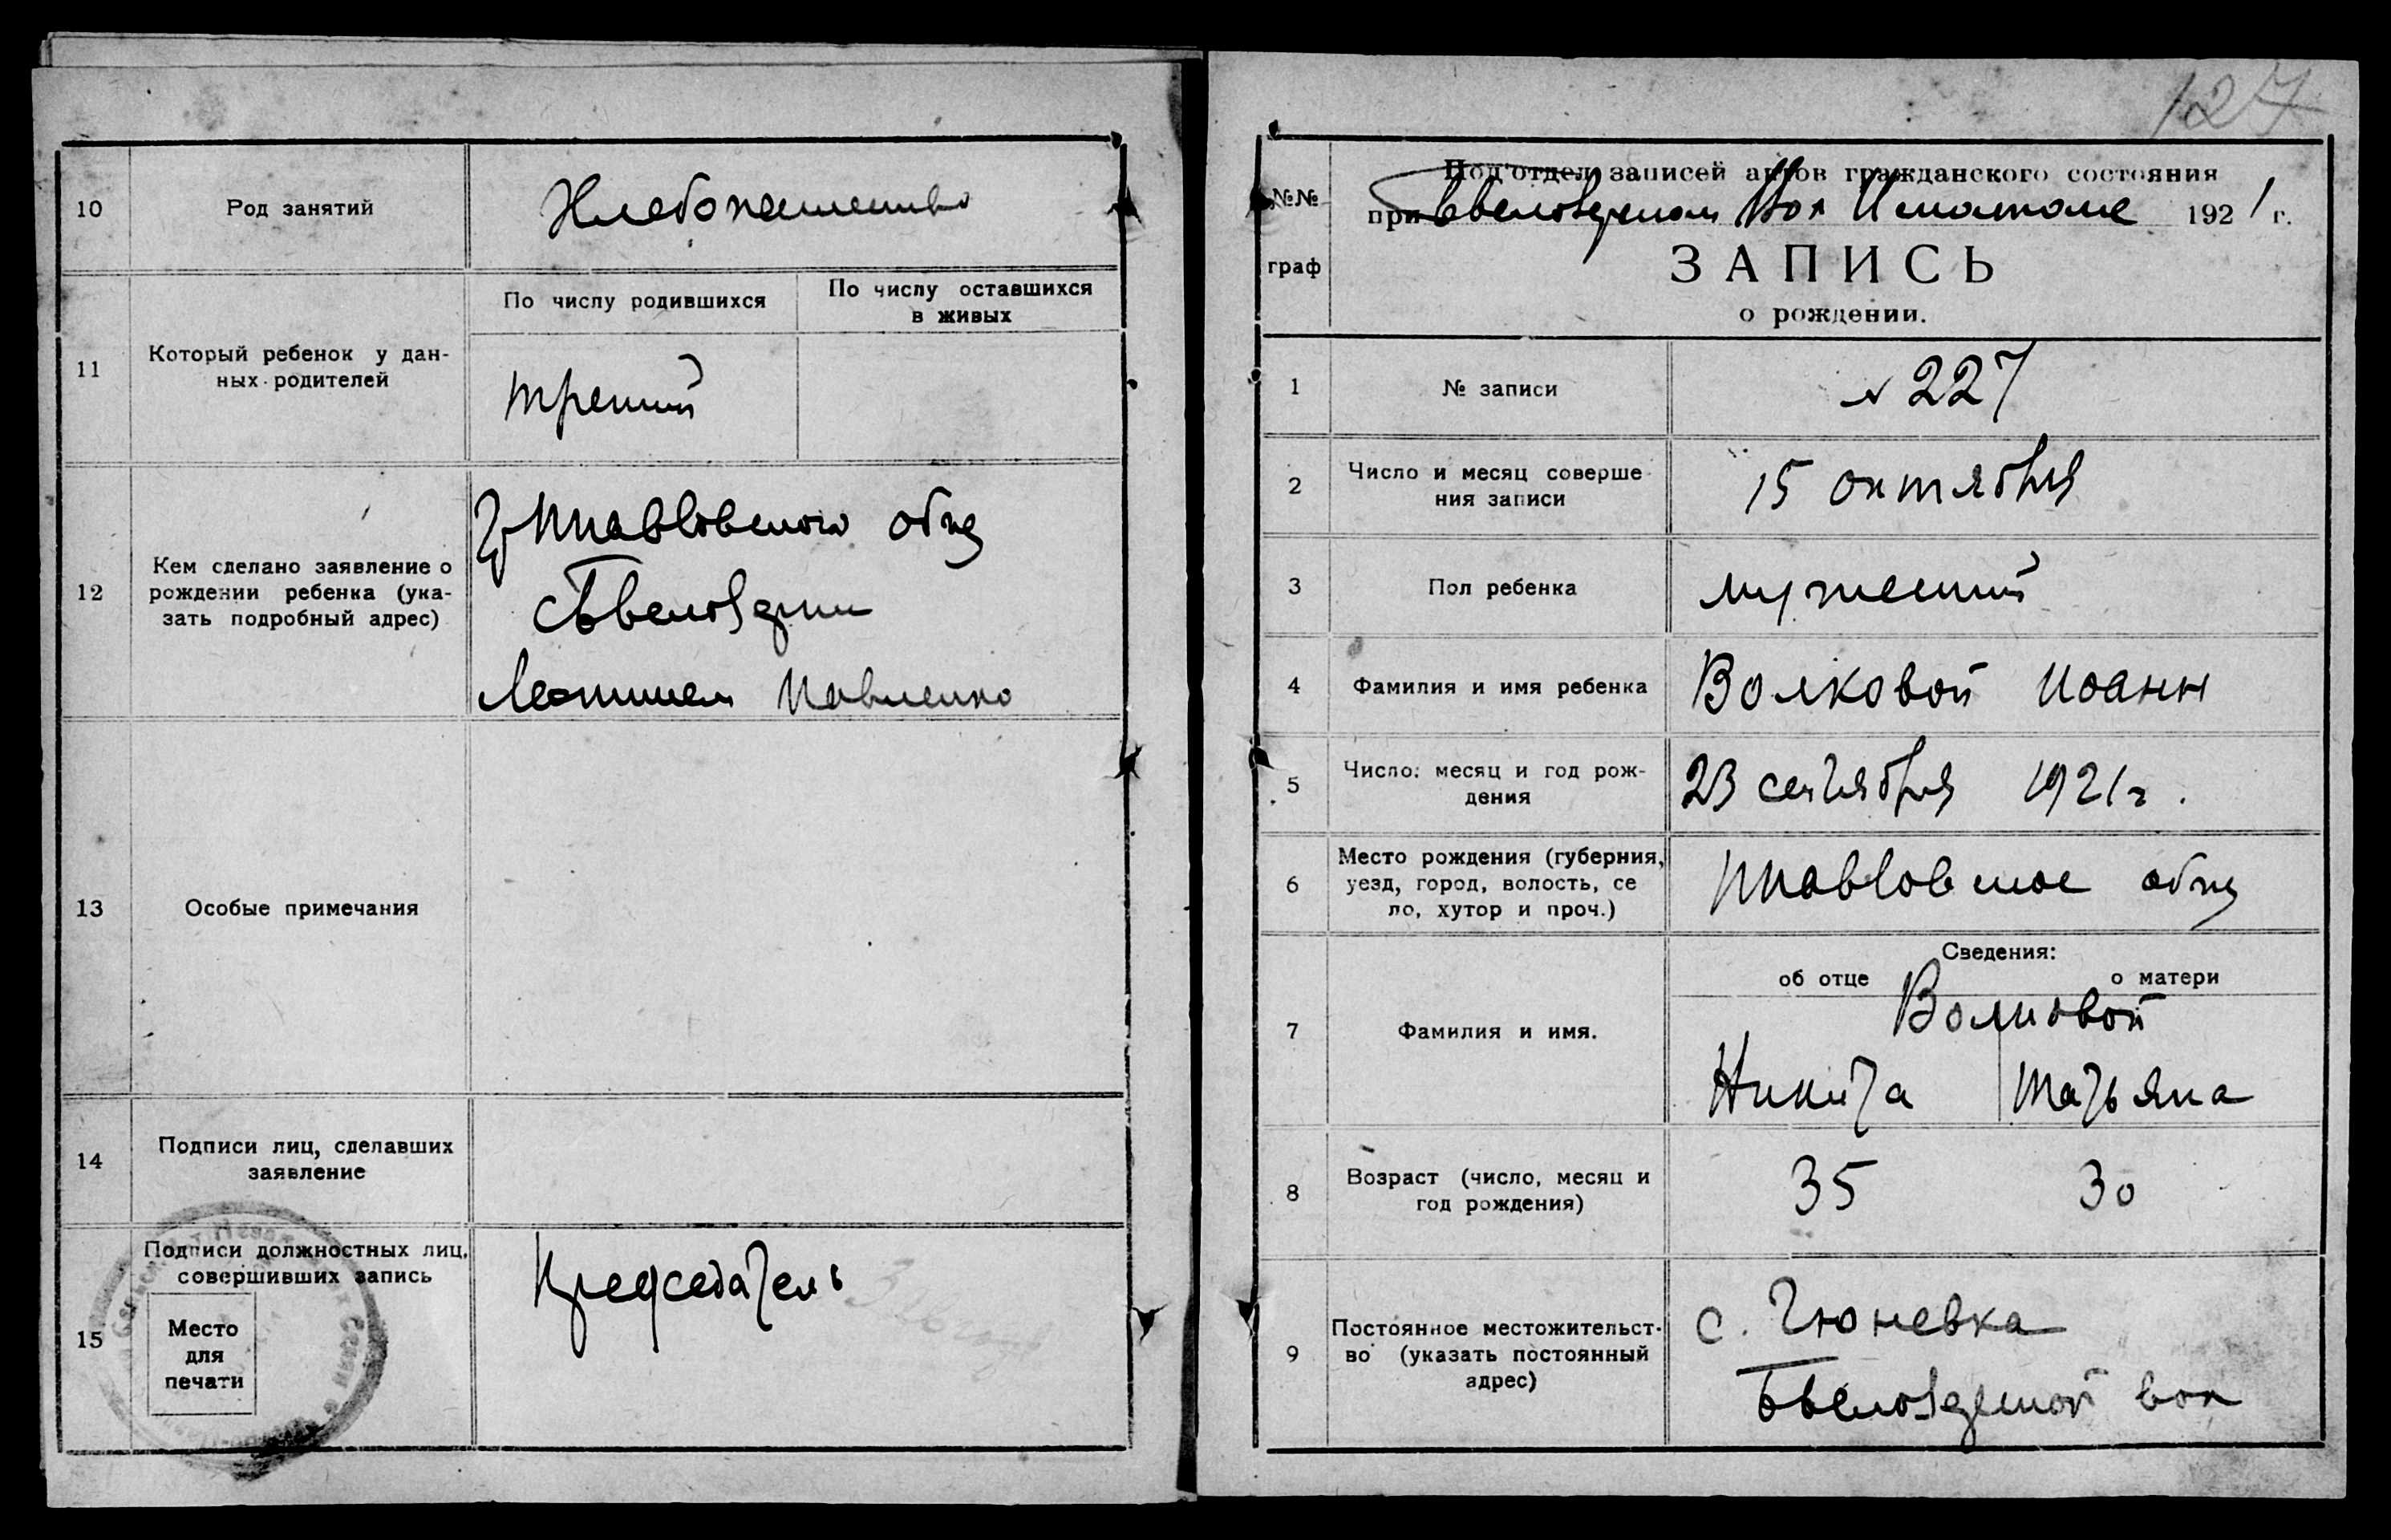 10
Род занятий
Хлебопашество
11
Который ребенок у дан-
ных родителей
По числу родившихся
По числу оставшихся
в живых
третий
12
Кем сделано заявление о
рождении ребенка (ука-
зать подробный адрес)
общ
Павленко
13
Особые примечания
14
Подписи лиц, сделавших
заявление
15
Подписи должностных лиц,
совершивших запись
Место
для
печати
Председатель
127
№№
граф
Под'отдел записей актов гражданского состояния
при 1921 г.
ЗАПИСЬ
о рождении.
1
№ записи
№ 227
2
Число и месяц соверше-
ния записи
15 октября
3
Пол ребенка
мужеский
4
Фамилия и имя ребенка
Волковой Иоанн
5
Число, месяц и год рож-
дения
23 сентября 1921 г.
6
Место рождения (губерния,
уезд, город, волость, се
ло, хутор и проч.)
общ
Сведения:
об отце о матери
7
Фамилия и имя.
Волковой
Никита Татьяна
8
Возраст (число, месяц и
год рождения)
35 30
9
Постоянное местожительст-
во (указать постоянный
адрес)
с. Гюневка
вол